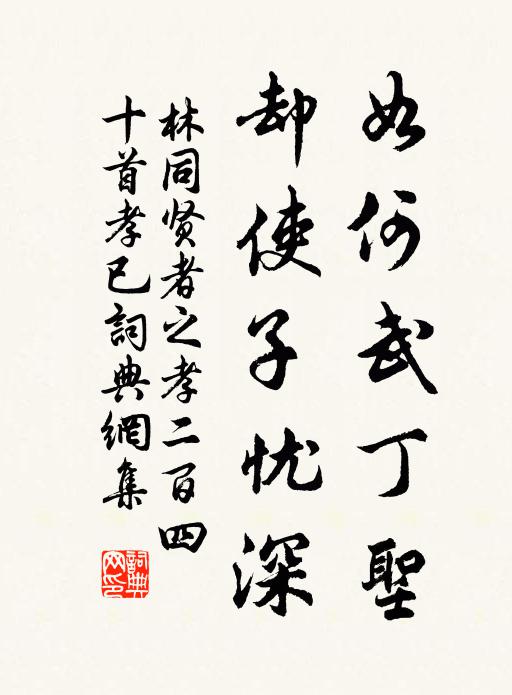 如何武丁聖
却使子忧深
林同贤者之孝二百四
十首孝已詞典網集
詞典
网印